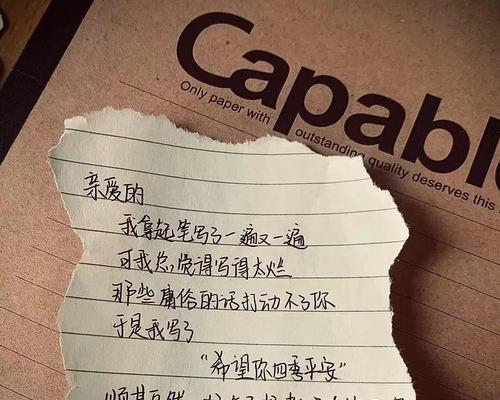 Capabl
Only paper with outstanding quality deserves this
亲爱的
我拿起笔写了一遍又一遍
可我总觉得写得太烂
那些庸俗的话打动不了你
于是我写了
“希望你四季平安”
顺其自然